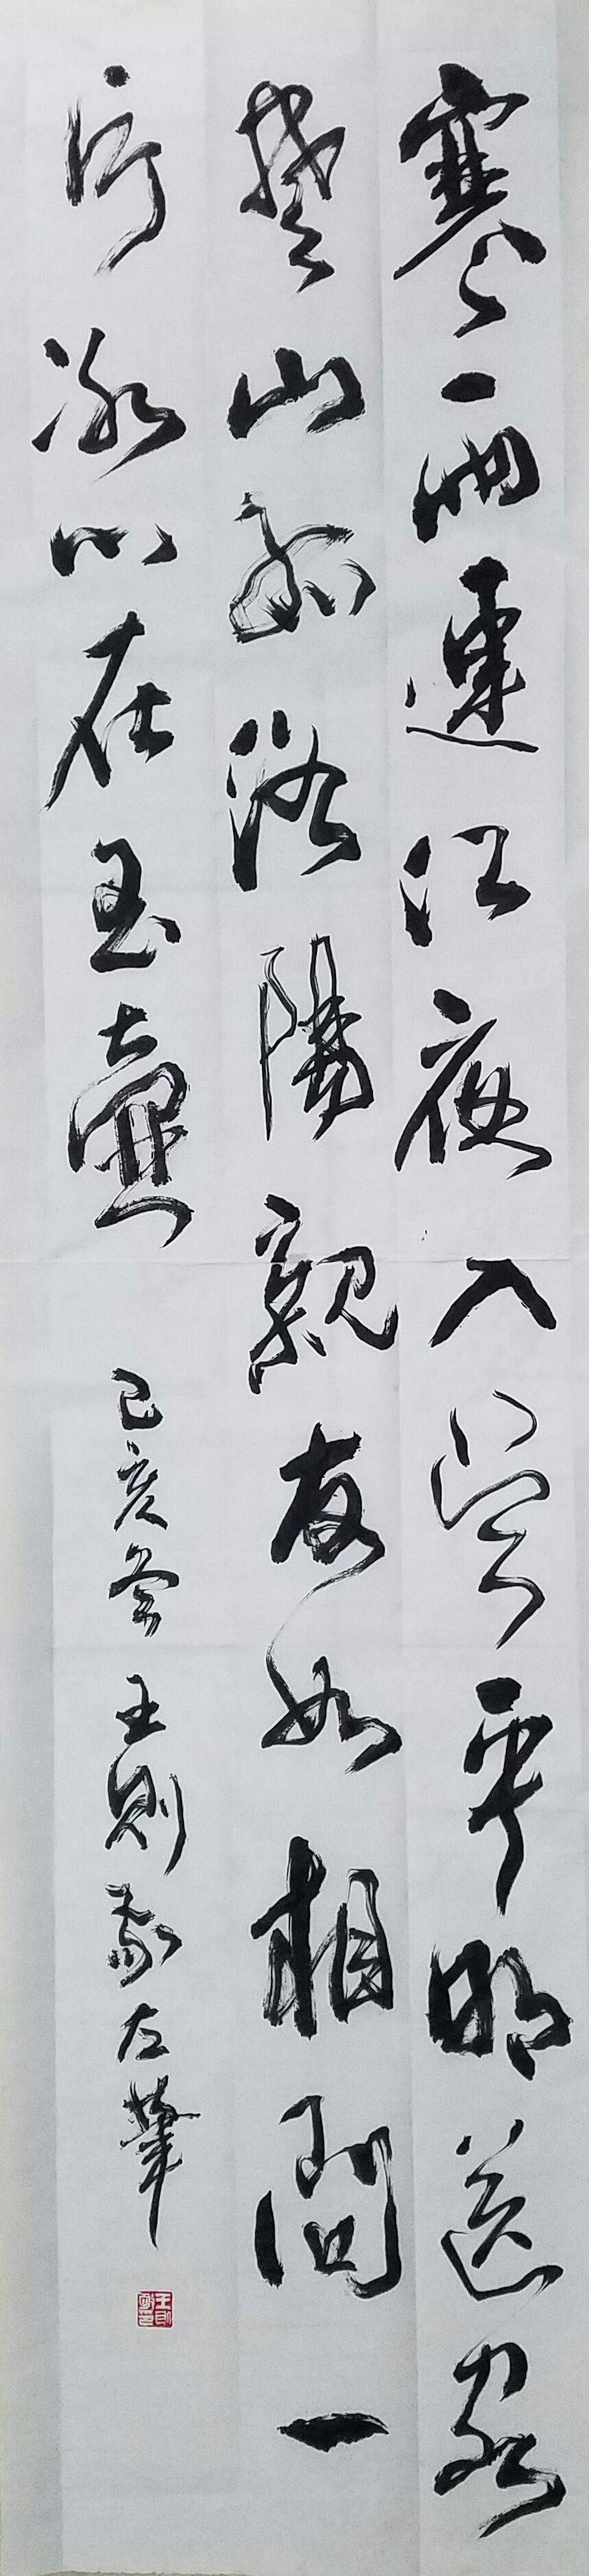 寒雨連江夜入吳平明送客
楚山孤洛陽親友如相問一
片冰心在玉壺 己亥冬 王則左筆